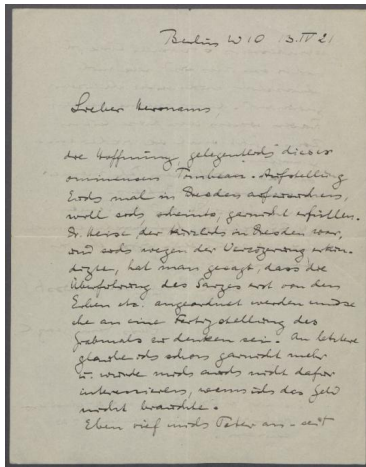 Berlin W 10 3.IV 21
Lieber Hermanns
die Hoffnung, gelegentlich dieser
ominensen Aufstellung
Euch mal in Dresden aufwarten,
will sich scheints, garnicht erfüllen.
Dr. Heise der kürzlich in Dresden war,
und sich wegen der Verzögerung erkun-
digte, hat man gesagt, dass die
Überführung des Sarges erst von den
Erben etc. angeordnet werden müsse
ehe an eine Fertigstellung des
Grabmals zu denken sei. An letztere
glaube ich schon garnicht mehr
u. würde mich auch nicht dafür
interessieren, wenn ich das Geld
nicht brauchte.
Eben rief mich Peter an - seit